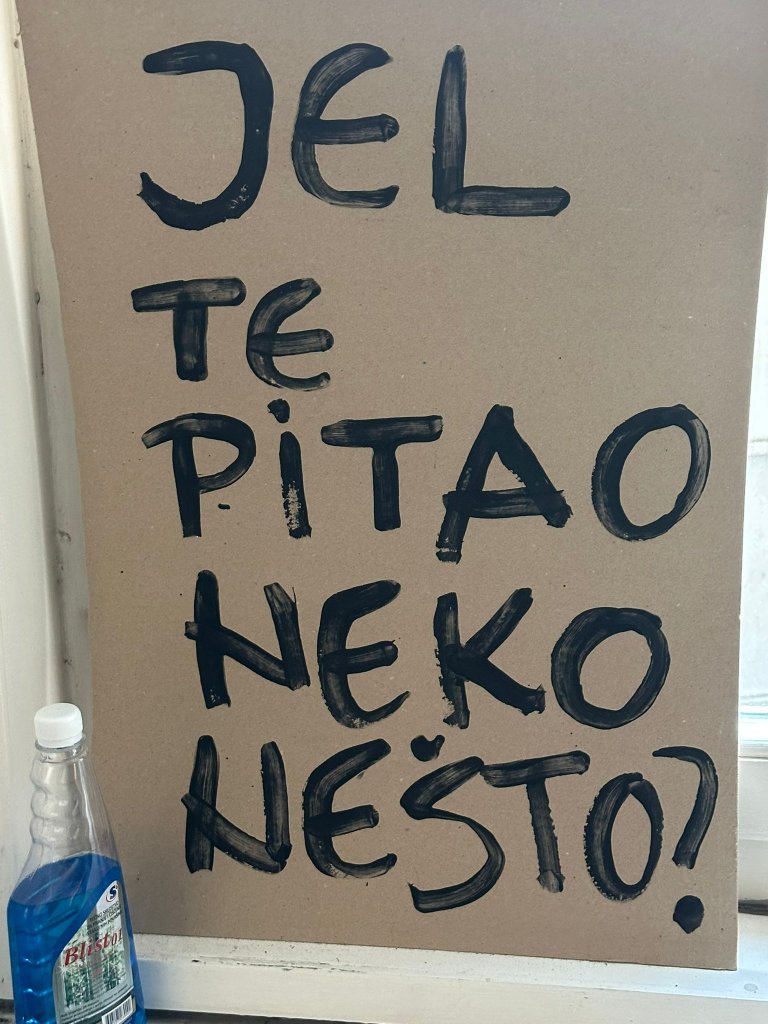 JEL
TE
PITAO
NEKO
NEŠTO?
S
Blistol